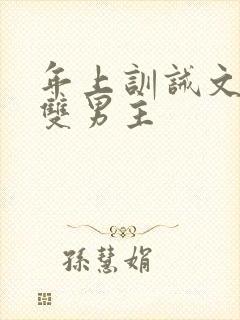 年上訓誡文
雙男主
孫慧娟